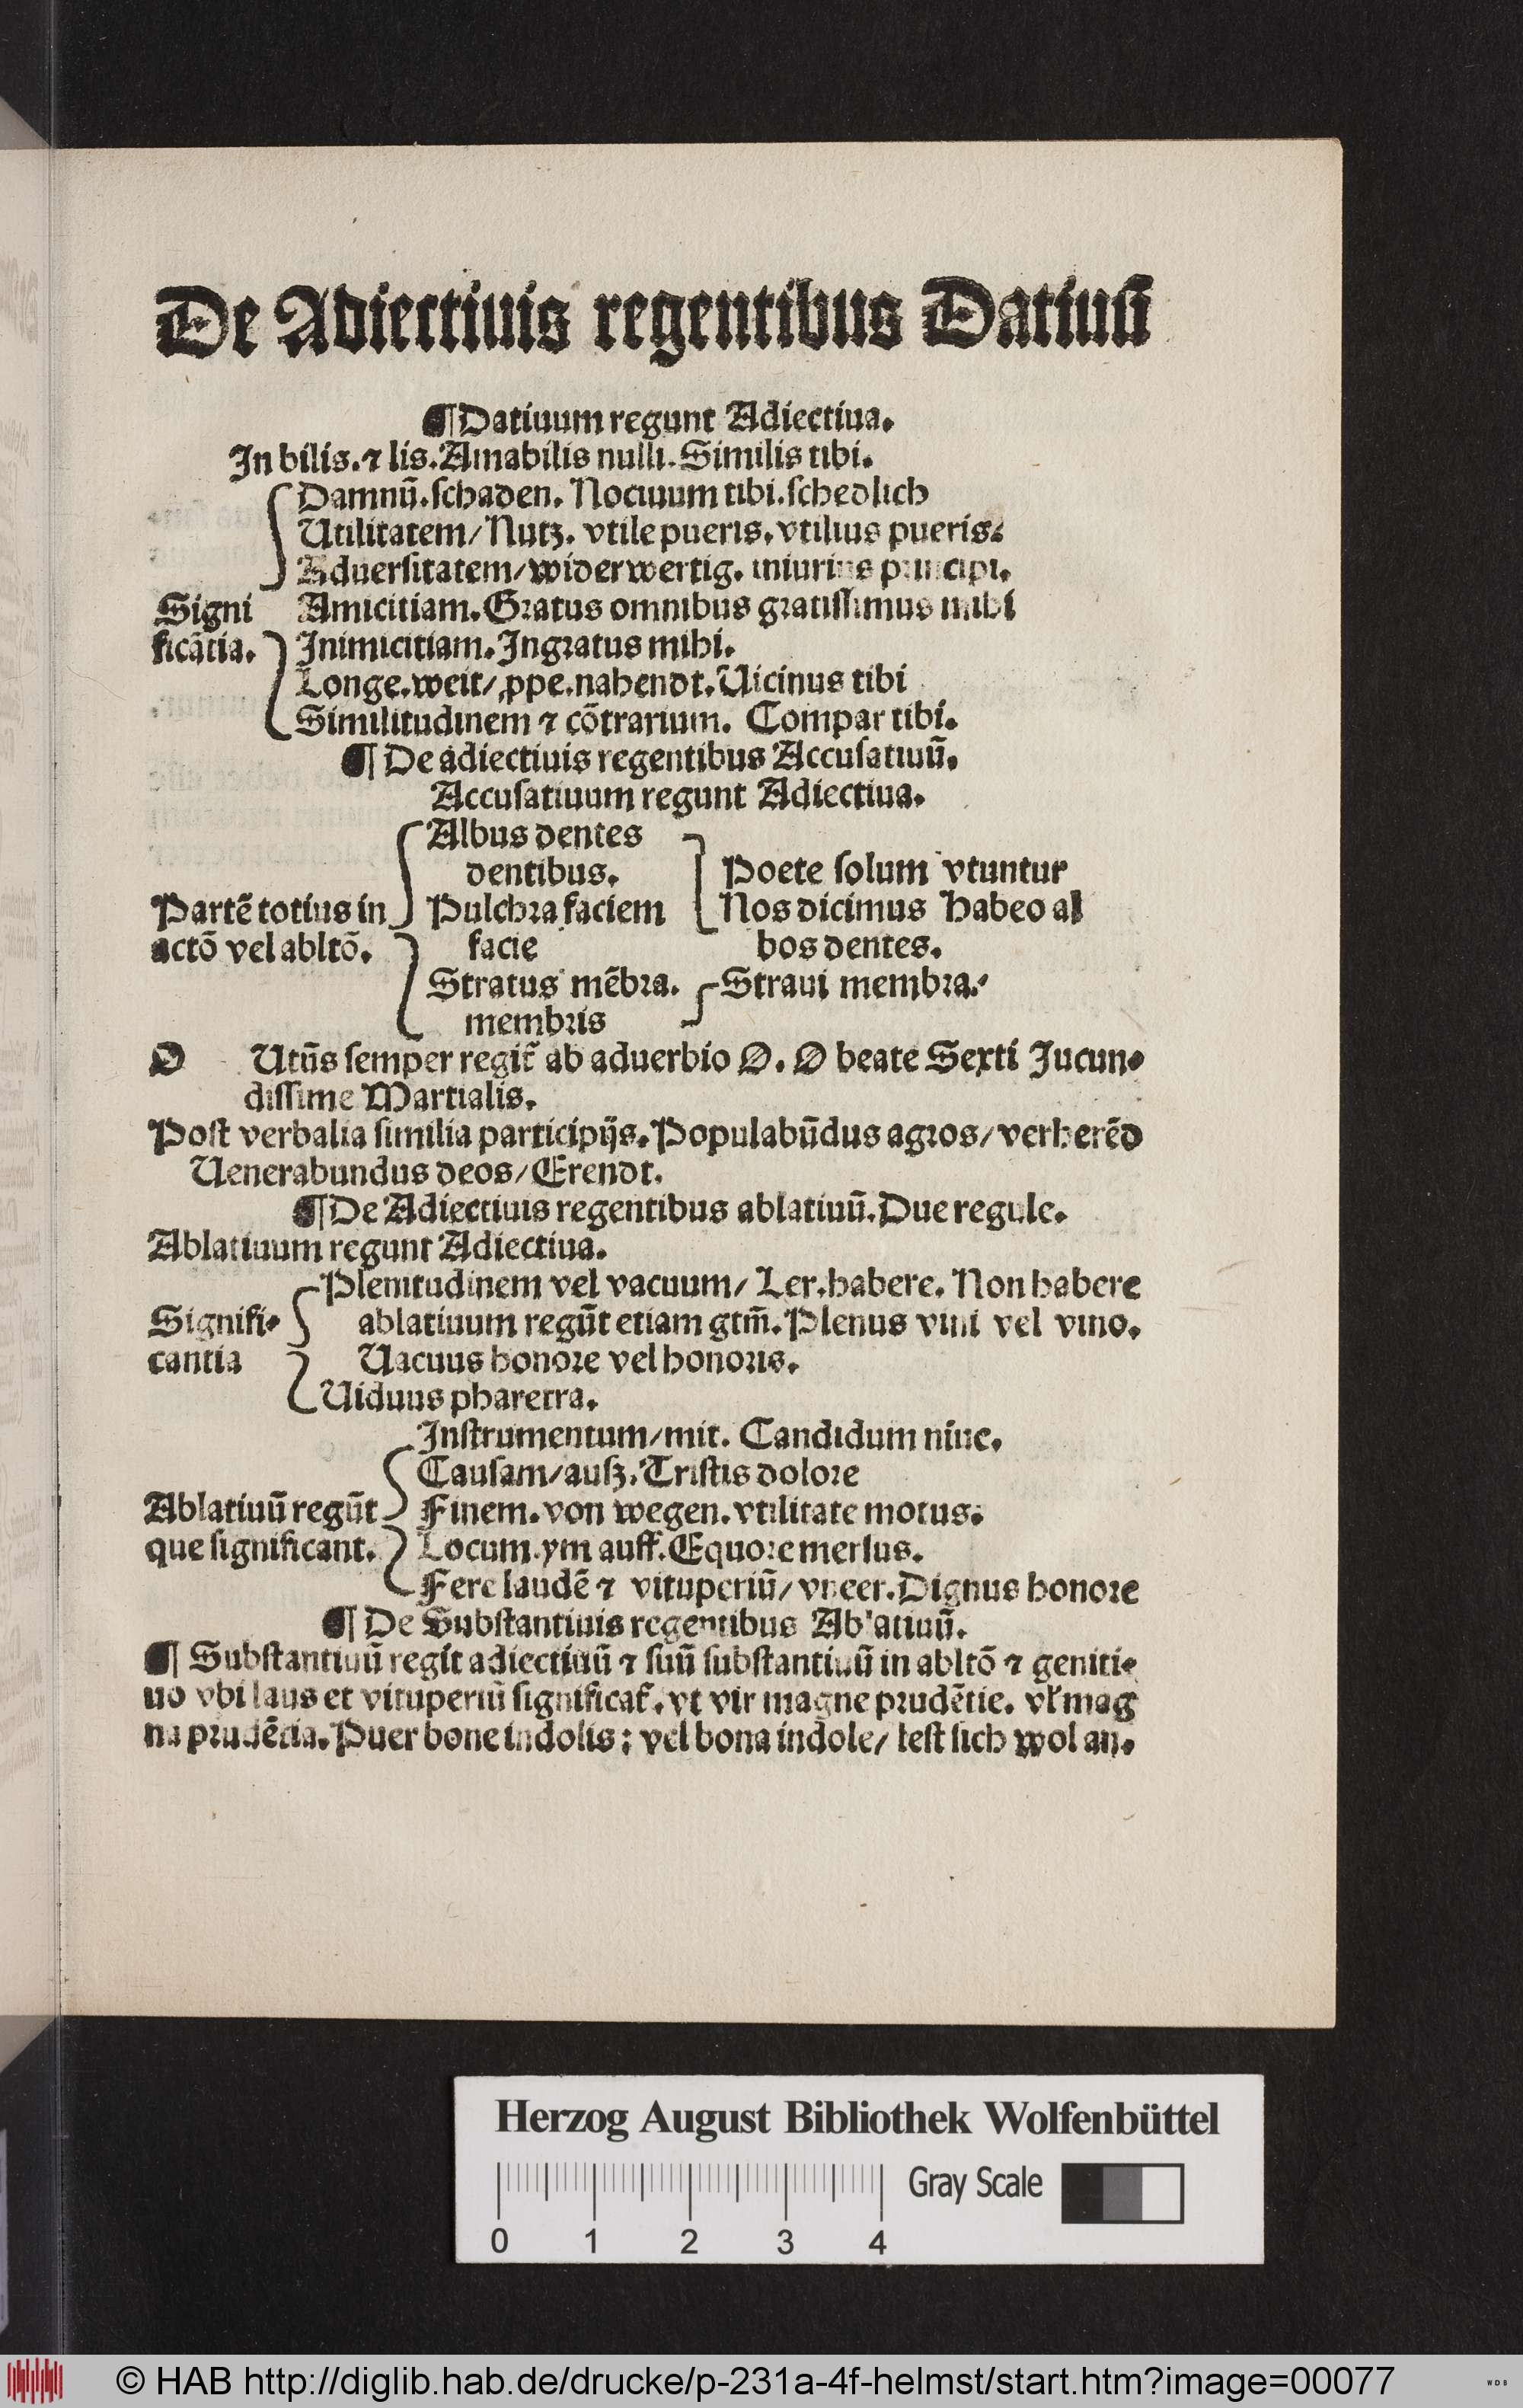 De Adiectiuis regentibus Datiuū
¶ Datiuum regunt Adiectiua.
In bilis. ⁊ lis. Amabilis nulli. Similis tibi.
Damnū. schaden. Nociuum tibi. schedlich
Utilitatem/ Nutz. vtile pueris. vtilius pueris.
Aduersitatem/ widerwertig. iniurius principi.
Signi Amicitiam. Gratus omnibus gratissimus mihi
ficātia. Inimicitiam. Ingratus mihi.
Longe. weit/ ꝓpe. nahendt. Uicinus tibi
Similitudinem ⁊ cōtrarium. Compar tibi.
¶ De adiectiuis regentibus Accusatiuū.
Accusatiuum regunt Adiectiua.
Albus dentes
dentibus. Poete solum vtuntur
Partē totius in Pulchra faciem Nos dicimus Habeo al
actō vel abltō. facie bos dentes.
Stratus mēbra. Straui membra.
membris
O Utūs semper regit̄ ab aduerbio O. O beate Sexti Jucun⸗
dissime Martialis.
Post verbalia similia participijs. Populabūdus agros/ verherēd
Uenerabundus deos/ Erendt.
¶ De Adiectiuis regentibus ablatiuū. Due regule.
Ablatiuum regunt Adiectiua.
Plenitudinem vel vacuum/ Ler. habere. Non habere
Signifi⸗ ablatiuum regūt etiam gtm̄. Plenus vini vel vino.
cantia Uacuus honore vel honoris.
Uiduus pharetra.
Instrumentum/ mit. Candidum niue.
Causam/ ausz. Tristis dolore
Ablatiuū regūt Finem. von wegen. vtilitate motus.
que significant. Locum. ym auff. Equore mersus.
Fere laudē ⁊ vituperiū/ Dignus honore
¶ De Substantiuis regentibus Ablatiuū.
¶ Substantiuū regit adiectiuū ⁊ suū substantiuū in abltō ⁊ geniti⸗
uo vbi laus et vituperiū significat̄. vt vir magne prudētie. vl̄ mag
na prudētia. Puer bone indolis: vel bona indole/ lest sich wol an.
Herzog August Bibliothek Wolfenbüttel
Gray Scale
0 1 2 3 4
© HAB http://diglib.hab.de/drucke/p-231a-4f-helmst/start.htm?image=00077
WDB